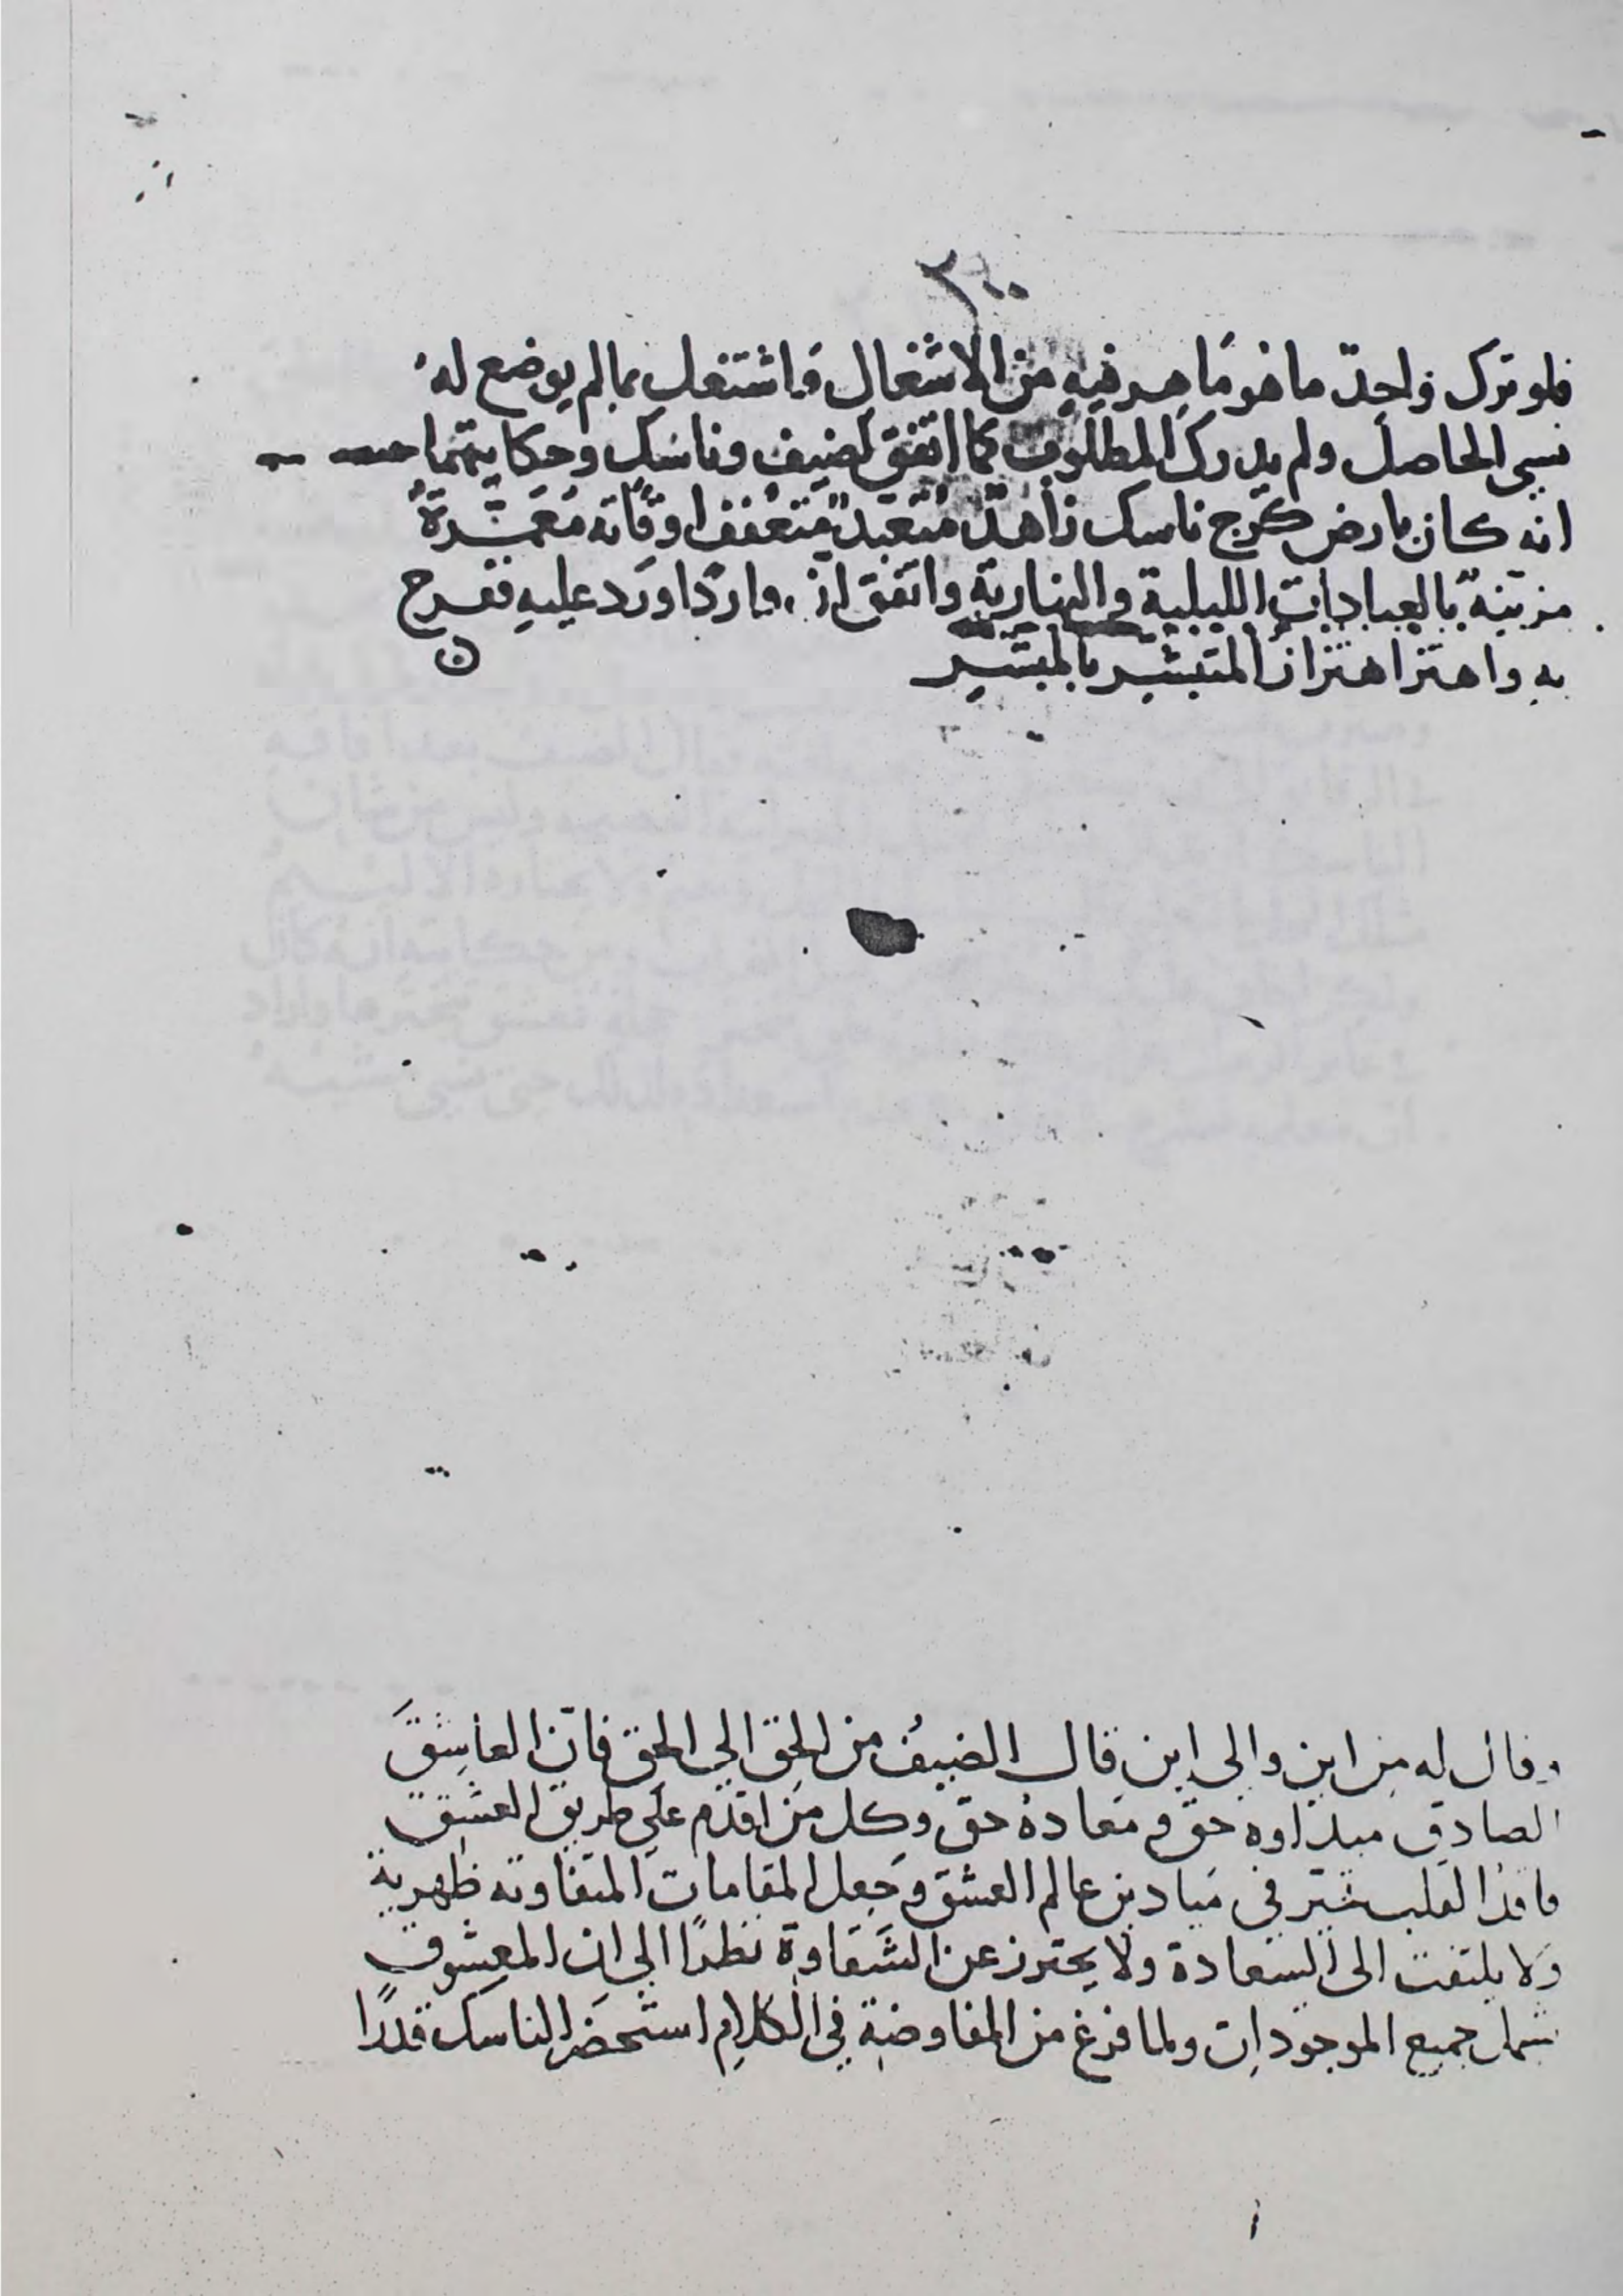 ٣٩٠
فلو ترك واحد ما هو ماهر فيه من الاشغال واشتغل بما لم يوضع له
نسى الحاصل ولم يدرك المطلوب كما اتفق لضيف وناسك وحكايتهما
انه كان بارض كرج ناسك زاهد متعبد متعفف اوقاته معمرة
مزينة بالعبادات الليلية والنهارية واتفق ان واردا ورد عليه ففرح
به واهتز اهتزاز المتبشر بالمبشر
وقال له من اين والى اين قال الضيف من الحق الى الحق فان العاشق
الصادق مبداوه حق ومعاده حق وكل من اقدم على طريق العشق
فاقد القلب في ميادين عالم العشق وجعل المقامات المتفاوته ظهرية
ولا يلتفت الى السعادة ولا يحترز عن الشقاوة نظرًا الى ان المعشوق
شمل جميع الموجودات ولما فرغ من المفاوضة في الكلام استحضر الناسك قدرًا